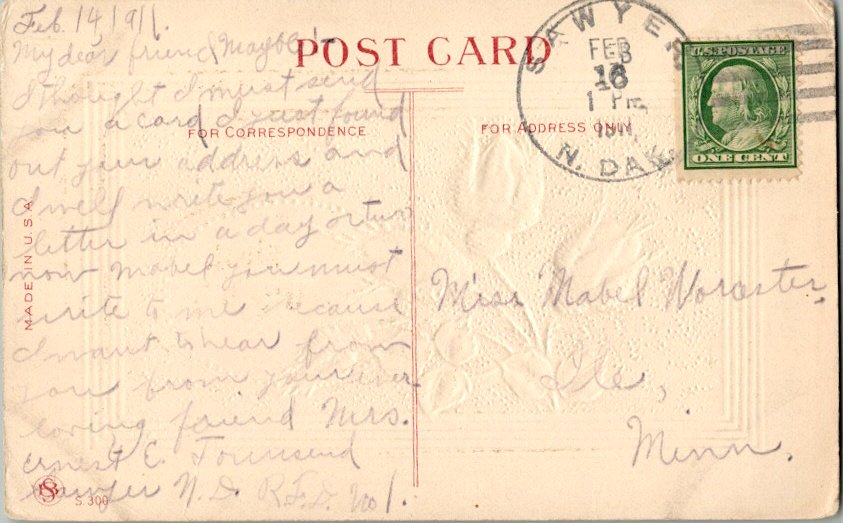 Feb. 14, 1911.
My dear friend Maybel:-
I thought I must send
you a card I just found
out your address and
I well write you a
letter in a day or two
now Mabel you must
write to me because
I want to hear from
you from your ever
loving friend Mrs.
Ernest E. Townsend
Sawyer N.D. R.F.D. No 1.
POST CARD
FOR CORRESPONDENCE
FOR ADDRESS ONLY
MADE IN U.S.A.
S. 300
SAWYER
FEB
16
1 PM
1911
N. DAK.
U.S. POSTAGE
ONE CENT
Miss Mabel Worcester,
Ile,
Minn.